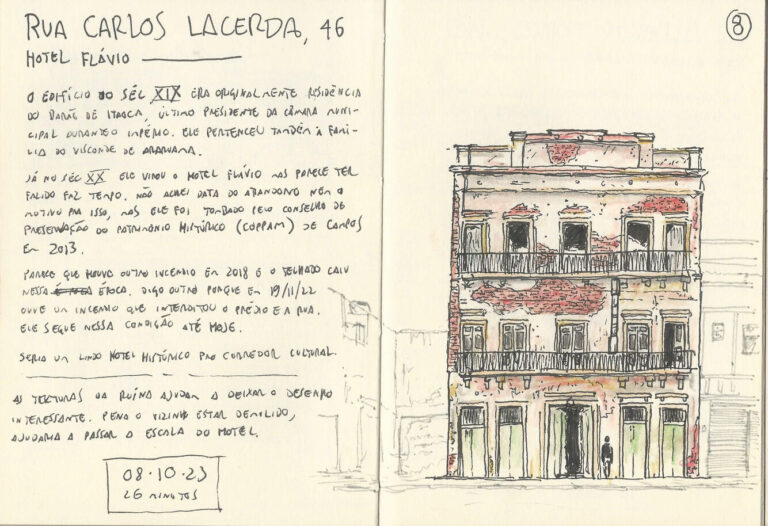 RUA CARLOS LACERDA, 46
HOTEL FLÁVIO
O EDIFÍCIO DO SÉC XIX ERA ORIGINALMENTE RESIDÊNCIA
DO BARÃO DE ITAOCA, ÚLTIMO PRESIDENTE DA CÂMARA MUNI-
CIPAL DURANTE O IMPÉRIO. ELE PERTENCEU TAMBÉM À FAMÍ-
LIA DO VISCONDE DE ARARUAMA.
JÁ NO SÉC XX ELE VIROU O HOTEL FLÁVIO MAS PARECE TER
FALIDO FAZ TEMPO. NÃO ACHEI DATA DO ABANDONO NEM O
MOTIVO PRA ISSO, MAS ELE FOI TOMBADO PELO CONSELHO DE
PRESERVAÇÃO DO PATRIMÔNIO HISTÓRICO (COPPAM) DE CAMPOS
EM 2013.
PARECE QUE HOUVE OUTRO INCENDIO EM 2018 E O TELHADO CAIU
NESSA ÉPOCA. DIGO OUTRO PORQUE EM 19/11/22
OUVE UM INCENDIO QUE INTERDITOU O PRÉDIO E A RUA.
ELE SEGUE NESSA CONDIÇÃO ATÉ HOJE.
SERIA UM LINDO HOTEL HISTÓRICO PRO CORREDOR CULTURAL.
AS TEXTURAS DA RUÍNA AJUDAM A DEIXAR O DESENHO
INTERESSANTE. PENA O VIZINHO ESTAR DEMOLIDO,
AJUDARIA A PASSAR A ESCALA DO HOTEL.
08·10·23
26 MINUTOS
8